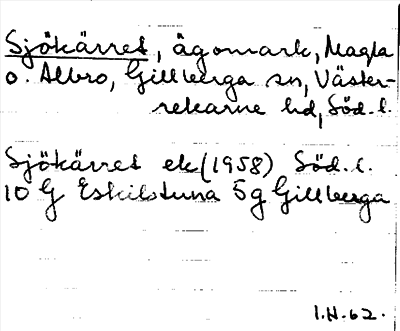 Sjökärret, ägomark, Magla
o. Åkbro, Gillberga sn, Väster-
rekarne hd, Söd. l.
Sjökärret ek (1958) Söd. l.
10 G Eskilstuna 5g Gillberga
I.H. 62.